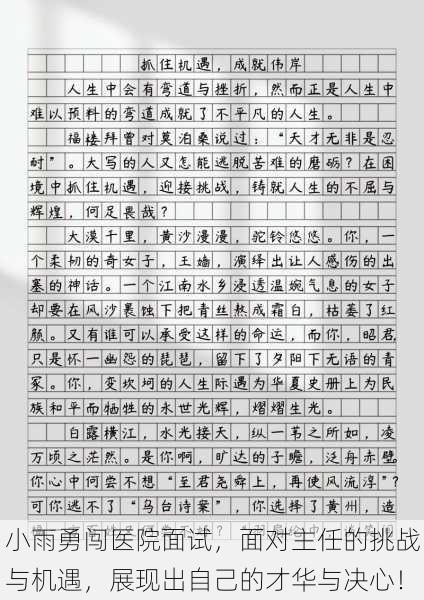 抓住机遇，成就伟岸
人生中会有弯道与挫折，然而正是人生中
难以预料的弯道成就了不平凡的人生。
福楼拜曾对莫泊桑说过：“天才无非是忍
耐”。大写的人又怎能逃脱苦难的磨砺？在困
境中抓住机遇，迎接挑战，铸就人生的不屈与
辉煌，何足畏哉？
大漠千里，黄沙漫漫，驼铃悠悠。你，一
个柔韧的奇女子，王嫱，演绎出让人感伤的出
塞的神话。一个江南水乡浸透温婉气息的女子
却要在风沙晨蚀下把青丝熬成霜白，枯萎了红
颜。又有谁可以承受这样的命运，而你，昭君，
只是怀一幽怨的琵琶，留下了夕阳下无语的青
冢。你，变坎坷的人生际遇为华夏史册上为民
族和平而牺牲的永世光辉，熠熠生光。
白露横江，水光接天，纵一苇之所如，凌
万顷之茫然。是你啊，旷达的子瞻，泛舟赤壁。
你心中何尝不想“至君尧舜上，再使风流淳”？
可你逃不了“乌台诗案”，你选择了黄州，造
小雨勇闯医院面试，面对主任的挑战
与机遇，展现出自己的才华与决心！